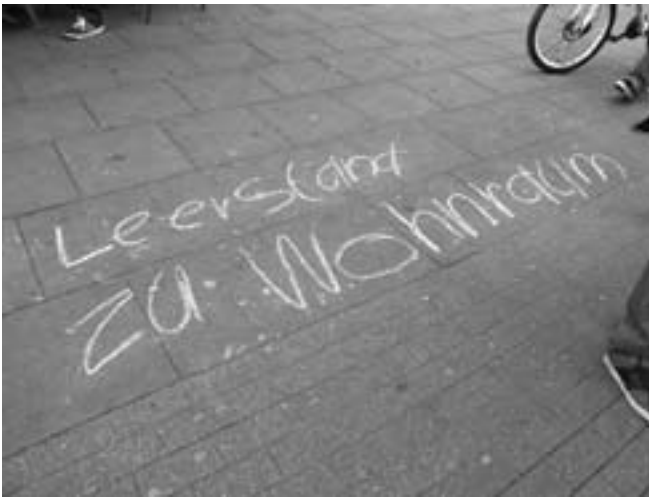 Leerstand
zu Wohnraum